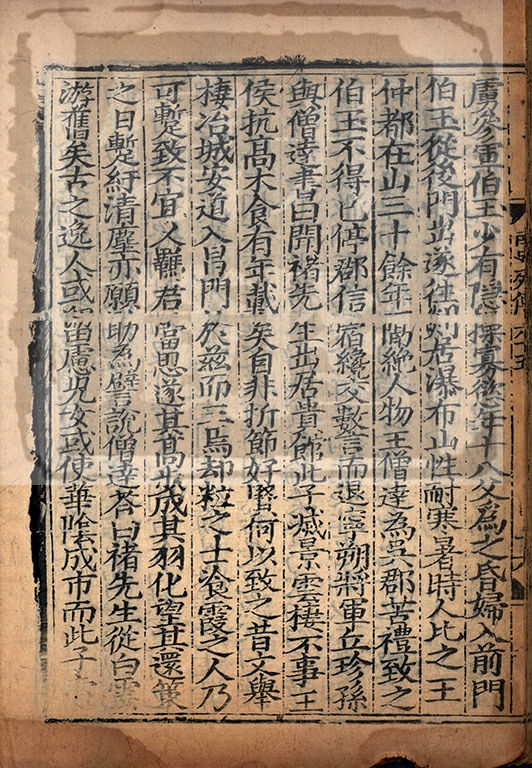 虜參軍伯玉少有隱操寡年十八父為之昏婦入前門
伯玉從後門出遂往剡居瀑布山性耐寒暑時人比之王
仲都在山三十餘年隔絶人物王僧達為吳郡苦禮致之
伯玉不得已停郡信宿纔交數言而退寧朔將軍丘珍孫
與僧達書曰聞褚先生出居貴館此子滅景雲棲不事王
侯抗高木食有年載矣自非折節好賢何以致之昔文舉
棲冶城安道入昌門於茲而三焉却粒之士飡霞之人乃
可蹔致不宜久羈君當思遂其高步成其羽化望其還策
之日蹔紓清塵亦願助為譬說僧達荅曰褚先生從白雲
游舊矣古之逸人或留慮兒女或使華陰成市而此子